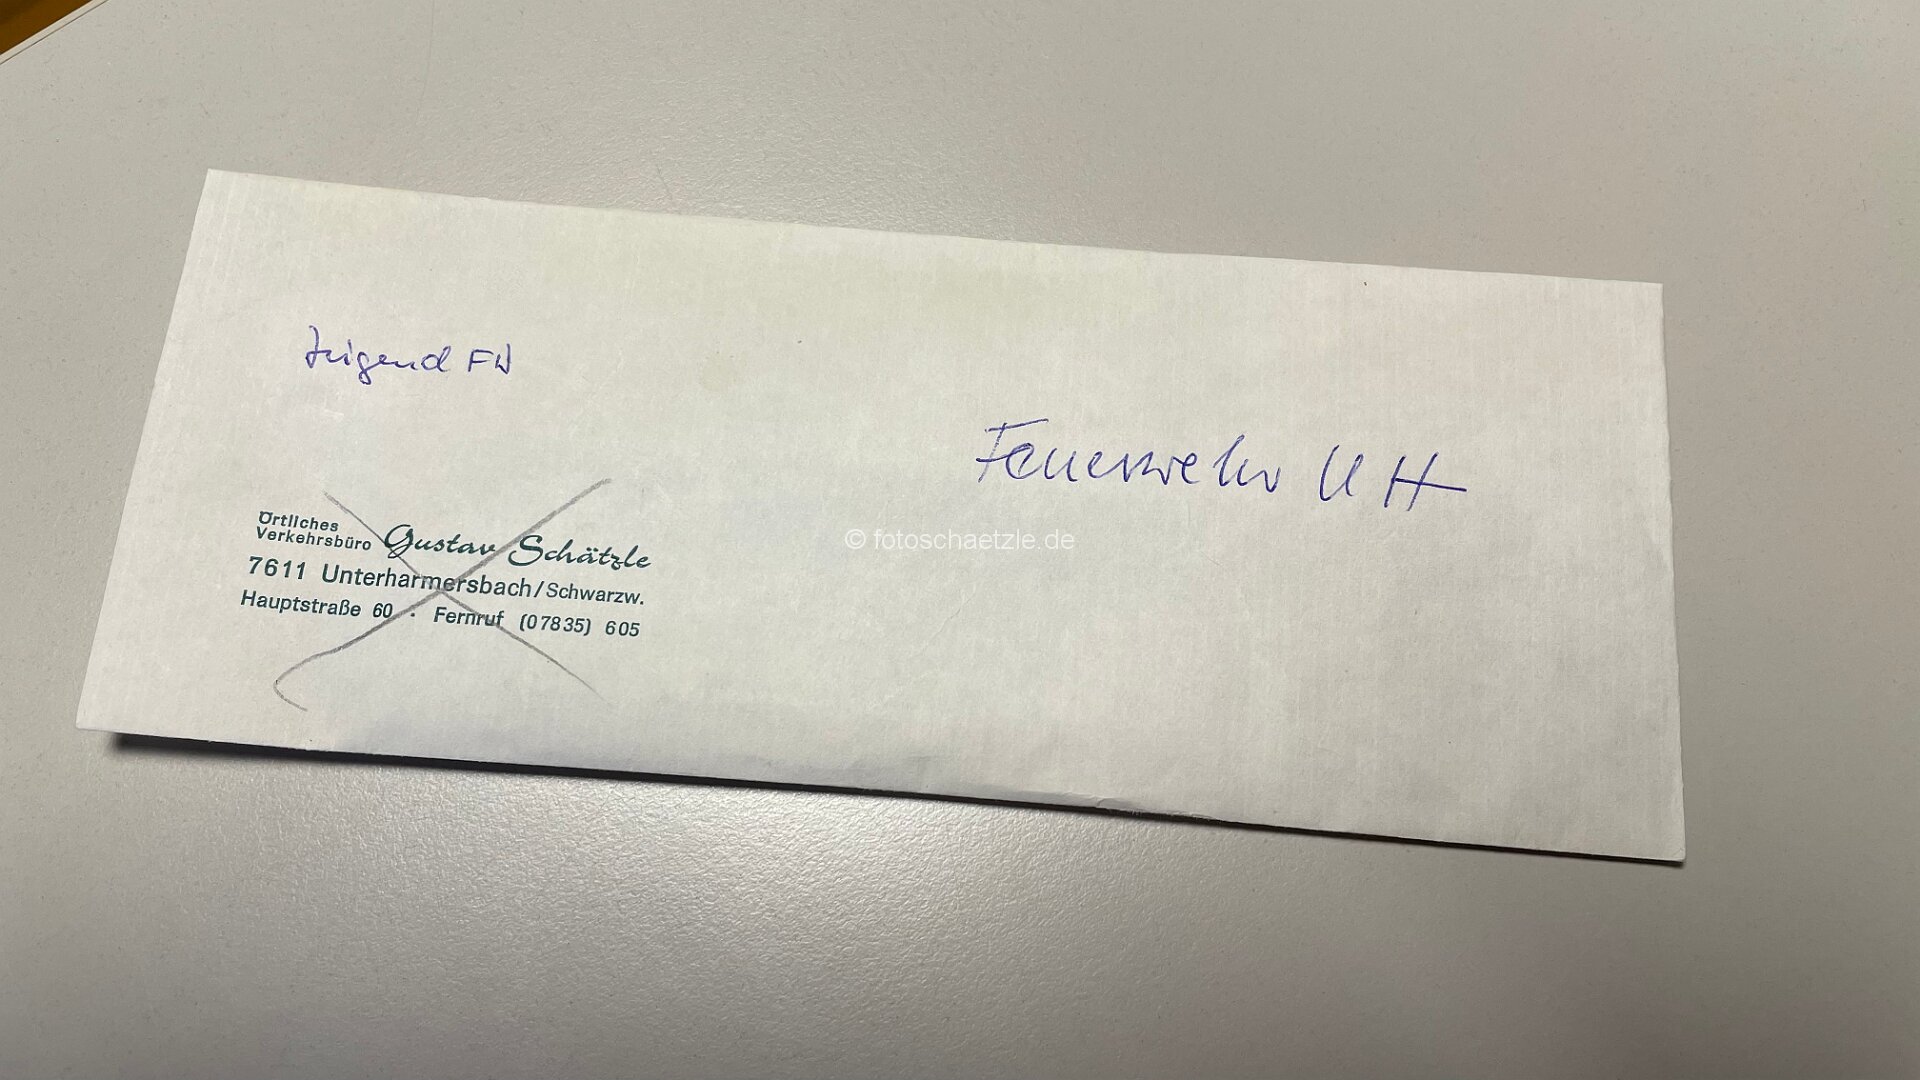 Jugend FW
Feuerwehr UH
Örtliches
Verkehrsbüro Gustav Schätzle
7611 Unterharmersbach/Schwarzw.
Hauptstraße 60 · Fernruf (07835) 605
© fotoschaetzle.de